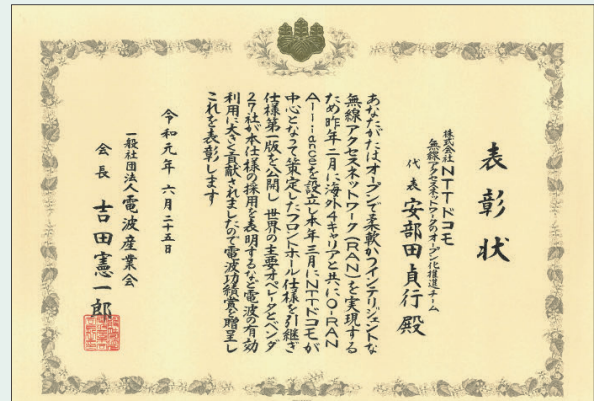 表彰状
株式会社NTTドコモ
無線アクセスネットワークのオープン化推進チーム
代表 安部田貞行 殿
あなたがたはオープンで柔軟かつインテリジェントな
無線アクセスネットワーク(RAN)を実現する
ため昨年二月に海外4キャリアと共にO-RAN
Allianceを設立し本年三月にNTTドコモが
中心となって策定したフロントホール仕様を引継ぎ
仕様第一版を公開し世界の主要オペレータとベンダ
27社が本仕様の採用を表明するなど電波の有効
利用に大きく貢献されましたので電波功績賞を贈呈し
これを表彰します
令和元年 六月二十五日
一般社団法人 電波産業会
会長 吉田憲一郎